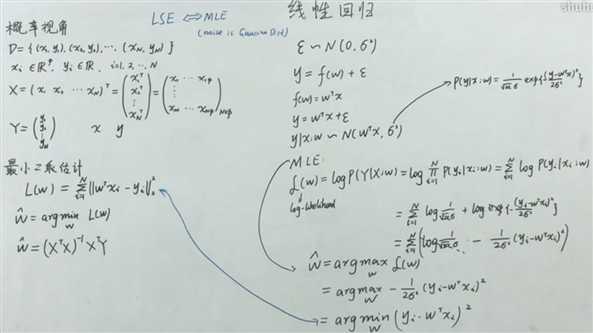 shuhu
线性回归
LSE ⟺ MLE
(noise is Gaussian Dist)
概率视角
D = {(x₁, y₁), (x₂, y₂), ⋯ (x_N, y_N)}
xᵢ ∈ ℝᵖ, yᵢ ∈ ℝ, i=1, 2, ⋯, N
X = (x₁ x₂ ⋯ x_N)ᵀ = (x₁ᵀ x₂ᵀ ⋮ x_Nᵀ) = (x₁₁ ⋯ x₁ₚ ⋮ x_N₁ ⋯ x_Nₚ)_N×p
Y = (y₁ y₂ ⋮ y_N) x y
最小二乘估计
L(w) = Σᵢ₌₁ᴺ ||wᵀxᵢ - yᵢ||₂²
ŵ = argmin_w L(w)
ŵ = (XᵀX)⁻¹XᵀY
ε ~ N(0, σ²)
y = f(w) + ε
f(w) = wᵀx
y = wᵀx + ε
y|x;w ~ N(wᵀx, σ²)
P(y|x;w) = 1/(√2π σ) exp{-(y-wᵀx)²/2σ²}
MLE:
ℒ(w) = log P(Y|X;w) = log ∏ᵢ₌₁ᴺ P(yᵢ|xᵢ;w) = Σᵢ₌₁ᴺ log P(yᵢ|xᵢ;w)
log-likelihood
= Σᵢ₌₁ᴺ log 1/(√2π σ) + log exp{-(yᵢ-wᵀxᵢ)²/2σ²}
= Σᵢ₌₁ᴺ (log 1/(√2π σ) - 1/2σ² (yᵢ-wᵀxᵢ)²)
ŵ = argmax_w ℒ(w)
= argmax_w - 1/2σ² (yᵢ-wᵀxᵢ)²
= argmin_w (yᵢ-wᵀxᵢ)²